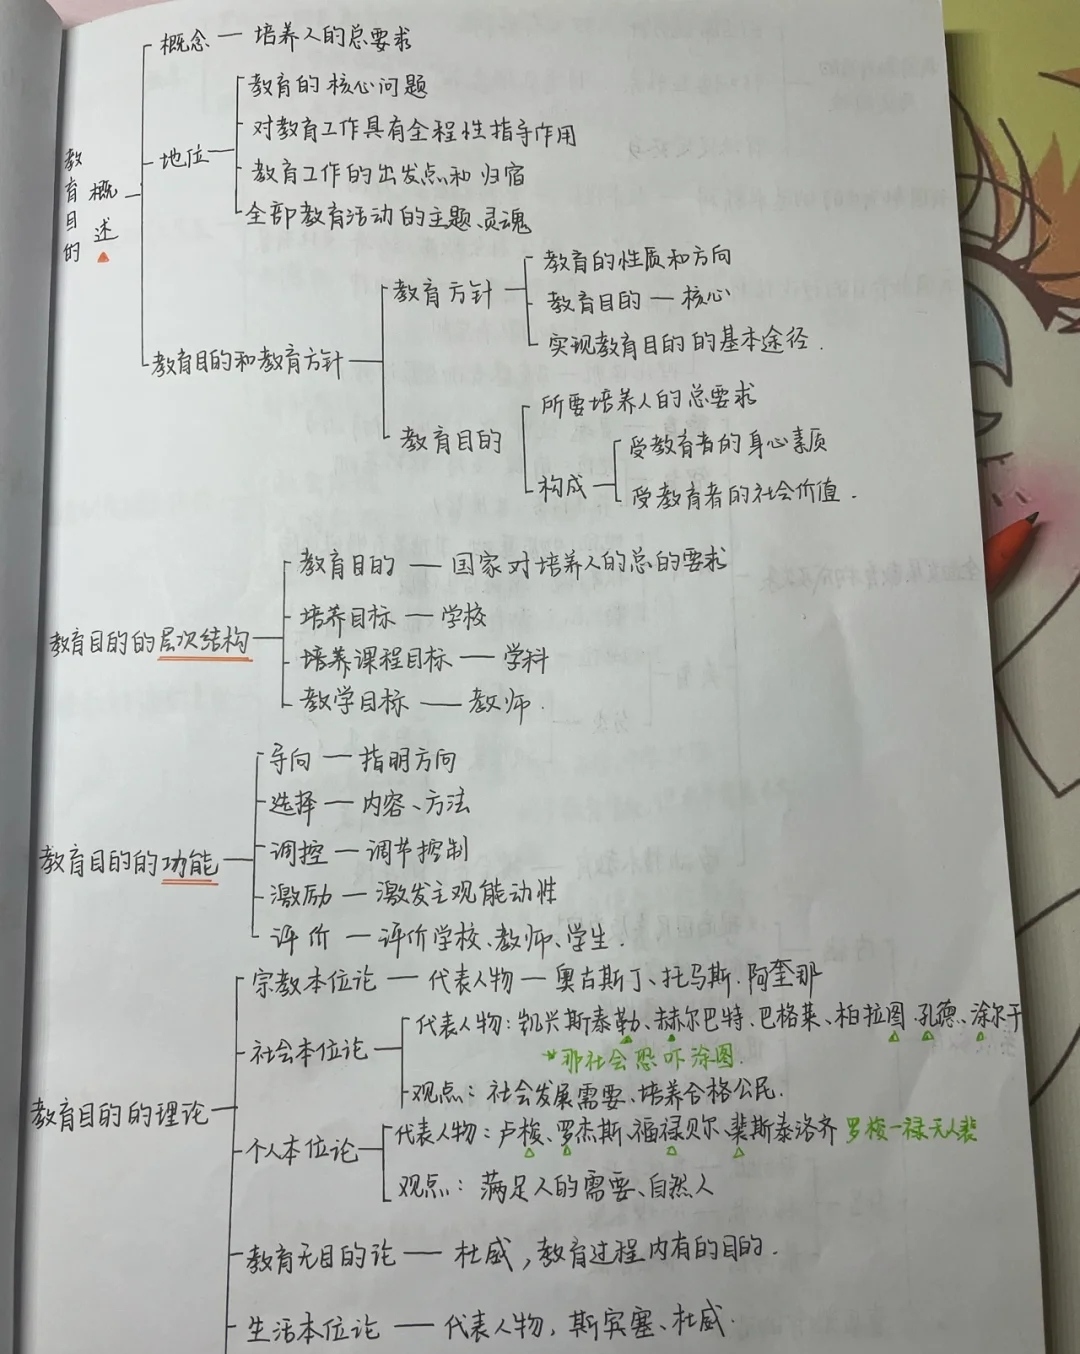 教育目的概述
概念 — 培养人的总要求
地位
教育的核心问题
对教育工作具有全程性指导作用
教育工作的出发点和归宿
全部教育活动的主题、灵魂
教育目的和教育方针
教育方针
教育的性质和方向
教育目的 — 核心
实现教育目的的基本途径.
教育目的
所要培养人的总要求
构成
受教育者的身心素质
受教育者的社会价值.
教育目的的层次结构
教育目的 — 国家对培养人的总的要求
培养目标 — 学校
培养课程目标 — 学科
教学目标 — 教师.
教育目的的功能
导向 — 指明方向
选择 — 内容、方法
调控 — 调节控制
激励 — 激发主观能动性
评价 — 评价学校、教师、学生.
教育目的的理论
宗教本位论 — 代表人物 — 奥古斯丁、托马斯.阿奎那
社会本位论
代表人物：凯兴斯泰勒、赫尔巴特、巴格莱、柏拉图、孔德、涂尔干
*那社会恐吓涂图.
观点：社会发展需要、培养合格公民.
个人本位论
代表人物：卢梭、罗杰斯、福禄贝尔、裴斯泰洛齐 罗梭一禄无人裴
观点：满足人的需要、自然人
教育无目的论 — 杜威，教育过程内有的目的.
生活本位论 — 代表人物，斯宾塞、杜威.